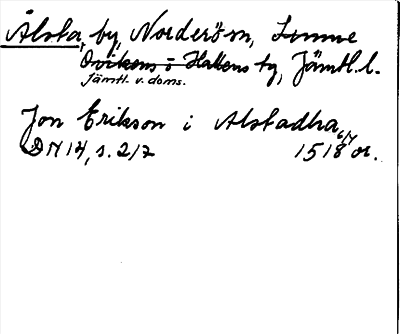 Ålsta, by, Norderön, Sunne
Ovikens o Hallens tg, Jämtl. l.
Jämtl. v. doms.
Jon Erikson i Alstadha
DN 14, s. 217 1518 6/4 or.